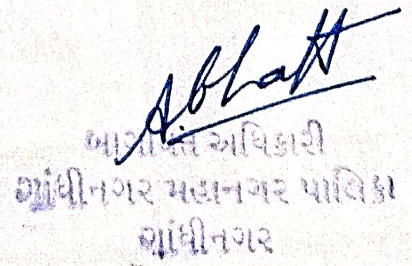 A.Bhatt
બાગાયત અધિકારી
ગાંધીનગર મહાનગર પાલિકા
ગાંધીનગર